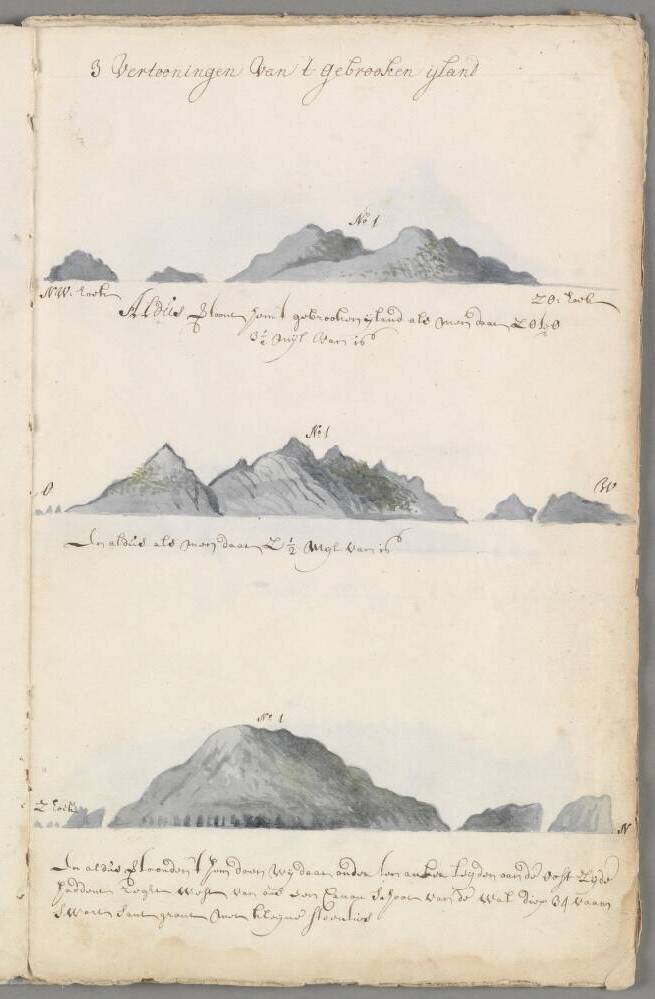 3 Vertooningen Van t gebrooken ijland
No 1
N:W: hoek
ZO: hoek
Aldus Stoont hem t gebrooken ijland als men daar ZO
3 1/2 Mijl Van is
No 1
O
W
En aldus als men daar Z 1/2 Mijl van is
No 1
Z hoek
N
En aldus Stoonden t hem doen wij daar onder ten anker leijden aan de oost Zijde
hadden Regt West van ons een Canon Schoot van de wal diep 34 vaam
Swart Sant gront met kleijne Steenties